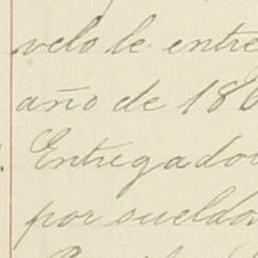 velo le entre
año de 186
Entregado
por sueldo